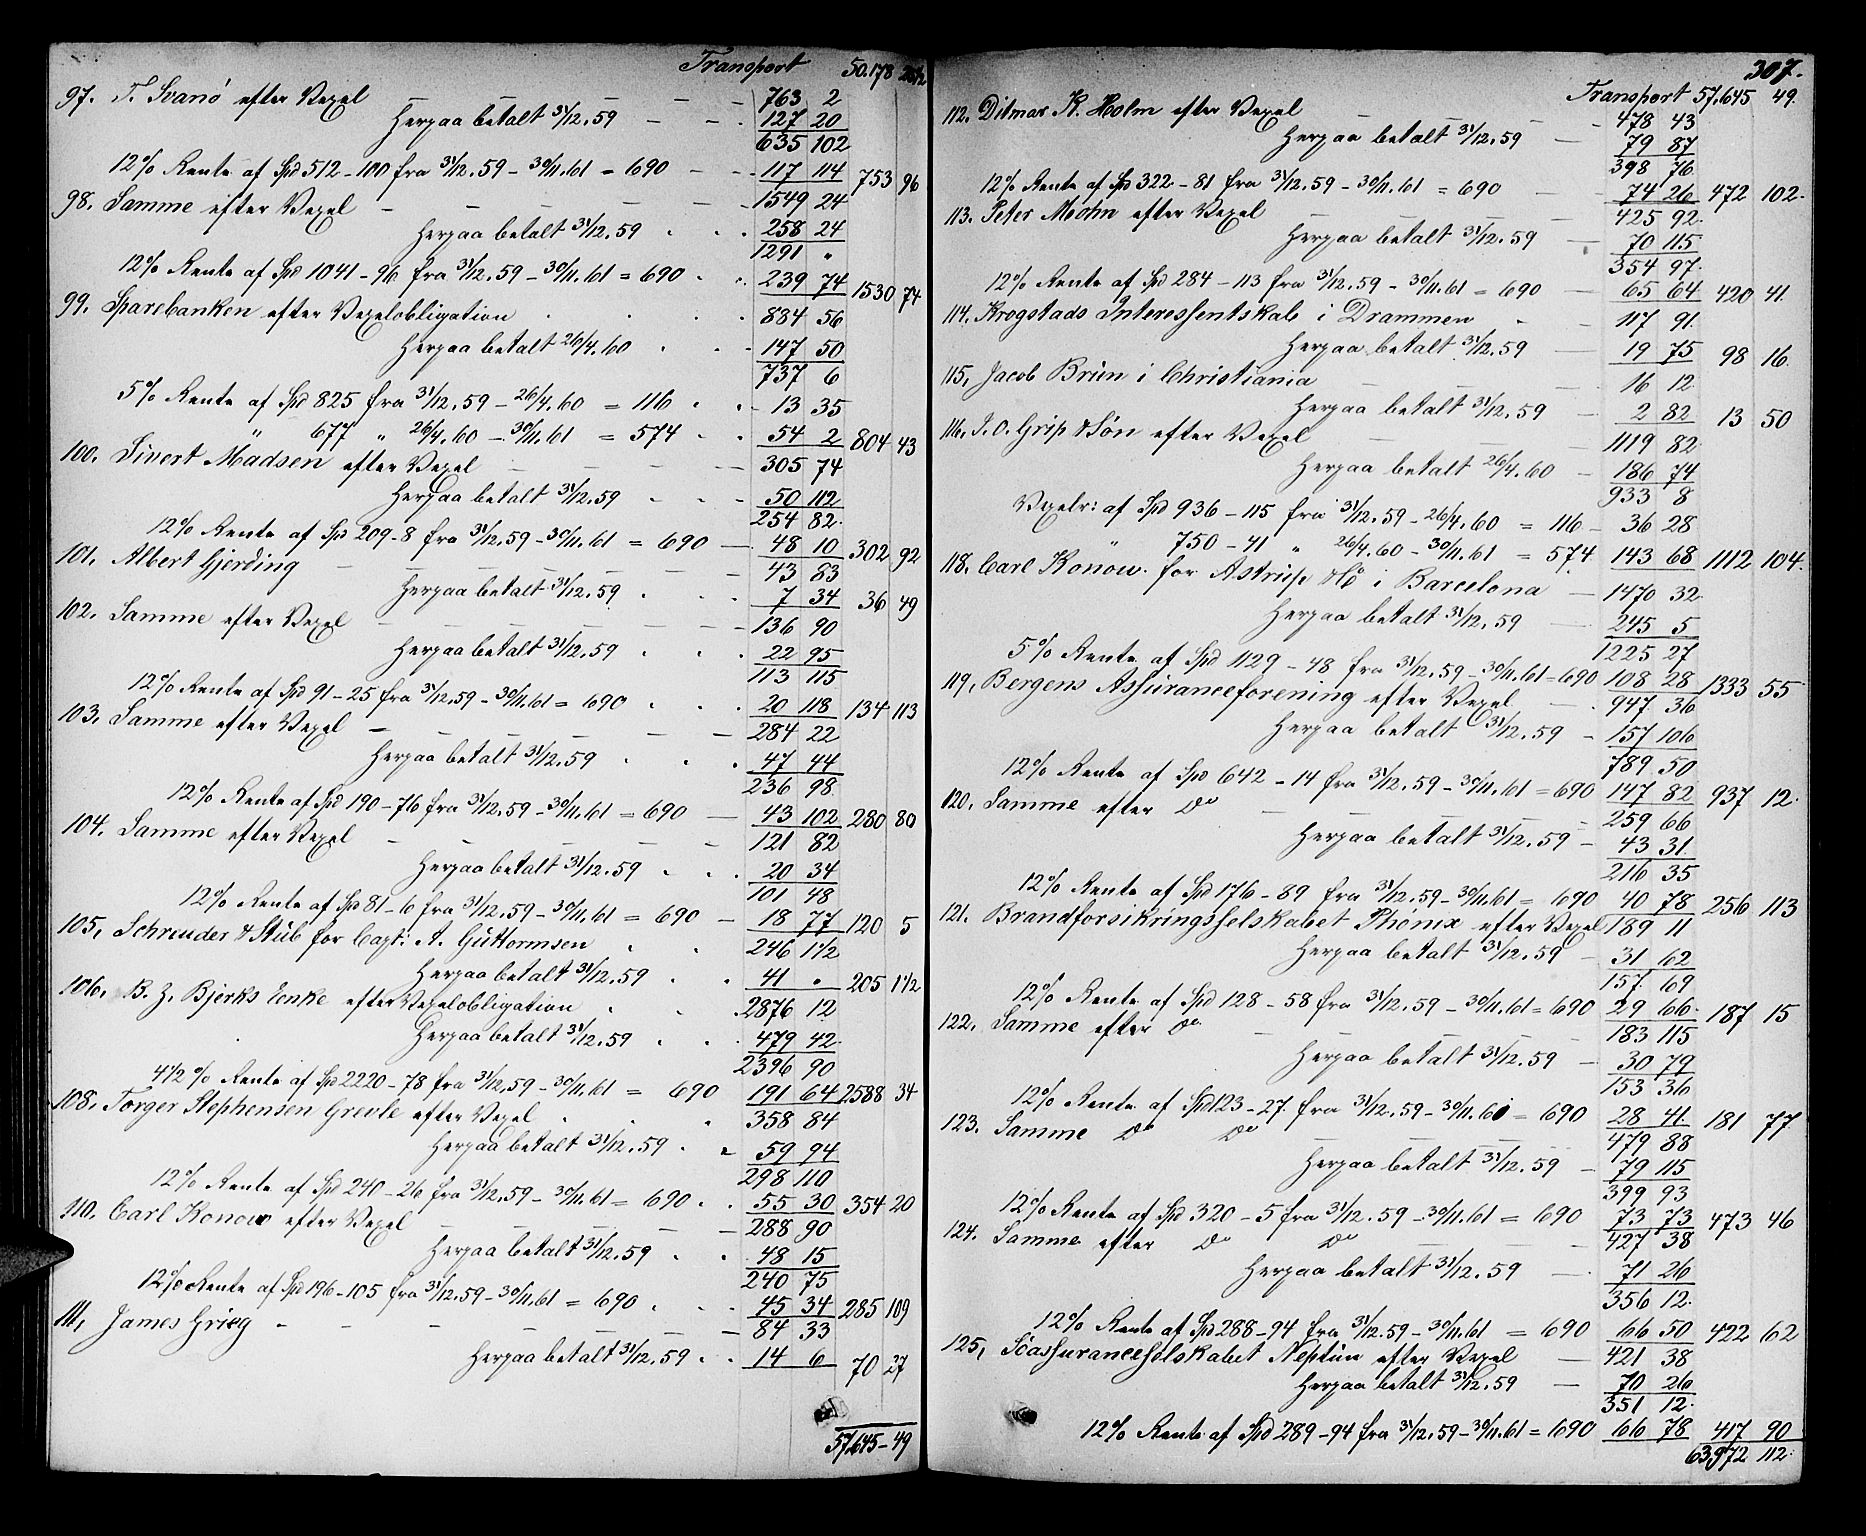 Transport 50.178
97. T. Svanö efter Vexel — — — 763 2
Herpaa betalt 31/12.59 — — 127 20
635 102
12% Rente af Spd 512-100 fra 31/12.59 - 30/11.61 = 690 — — 117 114 753 96
98. Samme efter Vexel — — — 1549 24
Herpaa betalt 31/12.59 258 24
1291 "
12% Rente af Spd 1041-96 fra 31/12.59 - 30/11.61 = 690 239 74 1530 74
99. Sparebanken efter Vexelobligation 884 56
Herpaa betalt 26/4.60 147 50
737 6
5% Rente af Spd 825 fra 31/12.59 - 26/4.60 = 116 13 35
" 677 " 26/4.60 - 30/11.61 = 574 54 2 804 43
100. Sivert Madsen efter Vexel — — — 305 74
Herpaa betalt 31/12.59 50 112
254 82.
12% Rente af Spd 209-8 fra 31/12.59 - 30/11.61 = 690 — 48 10 302 92
101. Albert Gjerding — — — 43 83
Herpaa betalt 31/12.59 7 34 36 49
102. Samme efter Vexel — — — 136 90
Herpaa betalt 31/12.59 22 95
113 115
12% Rente af Spd 91-25 fra 31/12.59 - 30/11.61 = 690 20 118 134 113
103. Samme efter Vexel — — — 284 22
Herpaa betalt 31/12.59 47 44
236 98
12% Rente af Spd 190-76 fra 31/12.59 - 30/11.61 = 690 — 43 102 280 80
104. Samme efter Vexel — — — 121 82
Herpaa betalt 31/12.59 20 34
101 48
12% Rente af Spd 81-6 fra 31/12.59 - 30/11.61 = 690 — 18 77 120 5
105, Schreuder & Stub for Capt: A. Guttormsen 246 1 1/2
Herpaa betalt 31/12.59 41 " 205 1 1/2
106, B. Z. Bjerks Enke efter Vexelobligation 2876 12
Herpaa betalt 31/12.59 479 42.
2396 90
4 1/2 % Rente af Spd 2220-78 fra 31/12.59 - 30/11.61 = 690 191 64 2588 34
108. Torger Stephensen Grevle efter Vexel 358 84
Herpaa betalt 31/12.59 59 94
298 110
12% Rente af Spd 240-26 fra 31/12.59 - 30/11.61 = 690 55 30 354 20
110. Carl Konow efter Vexel — — — 288 90
Herpaa betalt 31/12.59 48 15
240 75
12% Rente af Spd 196-105 fra 31/12.59 - 30/11.61 = 690 45 34 285 109
111, James Grieg — — — 84 33
Herpaa betalt 31/12.59 14 6 70 27
57,645-49
307.
Transport 57,645 49.
112. Ditmar K. Holm efter Vexel — — 478 43
Herpaa betalt 31/12.59 — 79 87
398 76
12% Rente af Spd 322-81 fra 31/12.59 - 30/11.61 = 690 — 74 26 472 102.
113. Peter Mohn efter Vexel — — 425 92.
Herpaa betalt 31/12.59 — 70 115
354 97.
12% Rente af Spd 284-113 fra 31/12.59 - 30/11.61 = 690 — 65 64 420 41.
114. Krogstads Interessentskab i Drammen — 117 91.
Herpaa betalt 31/12.59 — 19 75 98 16.
115, Jacob Brun i Christiania — — 16 12
Herpaa betalt 31/12.59 — 2 82 13 50
116. J. O. Grip & Søn efter Vexel — — 1119 82
Herpaa betalt 26/4.60 — 186 74
933 8
Vexelr: af Spd 936-115 fra 31/12.59 - 26/4.60 = 116 — 36 28
" 750-41 " 26/4.60 - 30/11.61 = 574 143 68 1112 104.
118. Carl Konow. for Astrup & Co i Barcelona — 1470 32
Herpaa betalt 31/12.59 — 245 5
1225 27
5% Rente af Spd 1129-48 fra 31/12.59 - 30/11.61 = 690 108 28 1333 55
119, Bergens Assuranceforening efter Vexel — 947 36
Herpaa betalt 31/12.59 — 157 106
789 50
12% Rente af Spd 642-14 fra 31/12.59 - 30/11.61 = 690 147 82 937 12.
120. Samme efter Do — — 259 66
Herpaa betalt 31/12.59 — 43 31
216 35
12% Rente af Spd 176-89 fra 31/12.59 - 30/11.61 = 690 40 78 256 113
121. Brandforsikringsselskabet Phönix efter Vexel 189 11
Herpaa betalt 31/12.59 — 31 62
157 69
12% Rente af Spd 128-58 fra 31/12.59 - 30/11.61 = 690 29 66 187 15
122. Samme efter Do — — 183 115
Herpaa betalt 31/12.59 — 30 79
153 36
12% Rente af Spd 123-27 fra 31/12.59 - 30/11.61 = 690 28 41 181 77.
123. Samme Do Do — 479 88
Herpaa betalt 31/12.59 — 79 115
399 93
12% Rente af Spd 320-5 fra 31/12.59 - 30/11.61 = 690 73 73 473 46
124. Samme efter Do Do — 427 38
Herpaa betalt 31/12.59 — 71 26
356 12.
12% Rente af Spd 288-94 fra 31/12.59 - 30/11.61 = 690 66 50 422 62
125, Söassuranceselskabet Neptun efter Vexel — 421 38
Herpaa betalt 31/12.59 — 70 26
351 12.
12% Rente af Spd 289-94 fra 31/12.59 - 30/11.61 = 690 66 78 417 90
63,972 112.